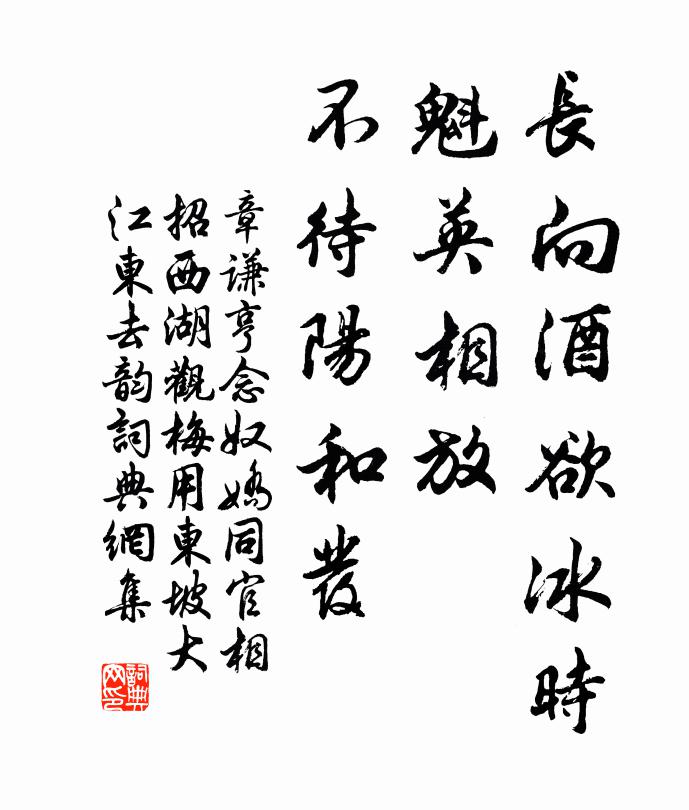 長向酒欲冰時
魁英相放
不待陽和發
章謙亨念奴嬌同官相
招西湖觀梅用東坡大
江東去韵詞典網集
詞典
网印